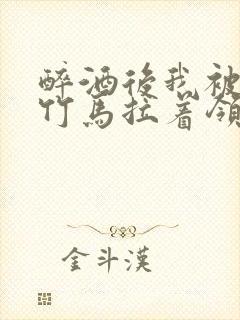 醉酒後我被
竹馬拉着領
金斗漢